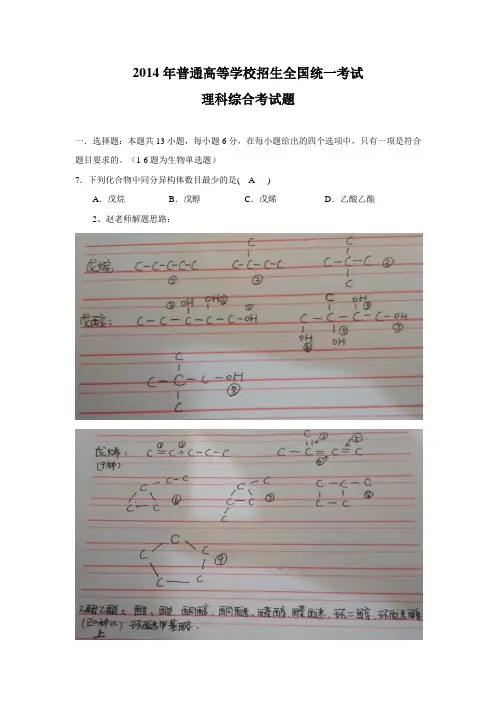 2014 年普通高等学校招生全国统一考试
理科综合考试题
一．选择题：本题共 13 小题，每小题 6 分，在每小题给出的四个选项中，只有一项是符合
题目要求的。（1-6 题为生物单选题）
7．下列化合物中同分异构体数目最少的是( A )
A．戊烷 B．戊醇 C．戊烯 D．乙酸乙酯
2、赵老师解题思路：
戊烷 C-C-C-C-C ① C-C-C-C ② C-C-C ③
戊醇：
C-C-C-C-C-OH
C-C-C-OH ⑧
戊烯：
(9种)
C=C=C-C-C
⑥ ⑦ ⑧
⑨
乙酸乙酯：酯、酸、酮醇、酮醚、醛醇、醛醚、环二醇、环醚醇